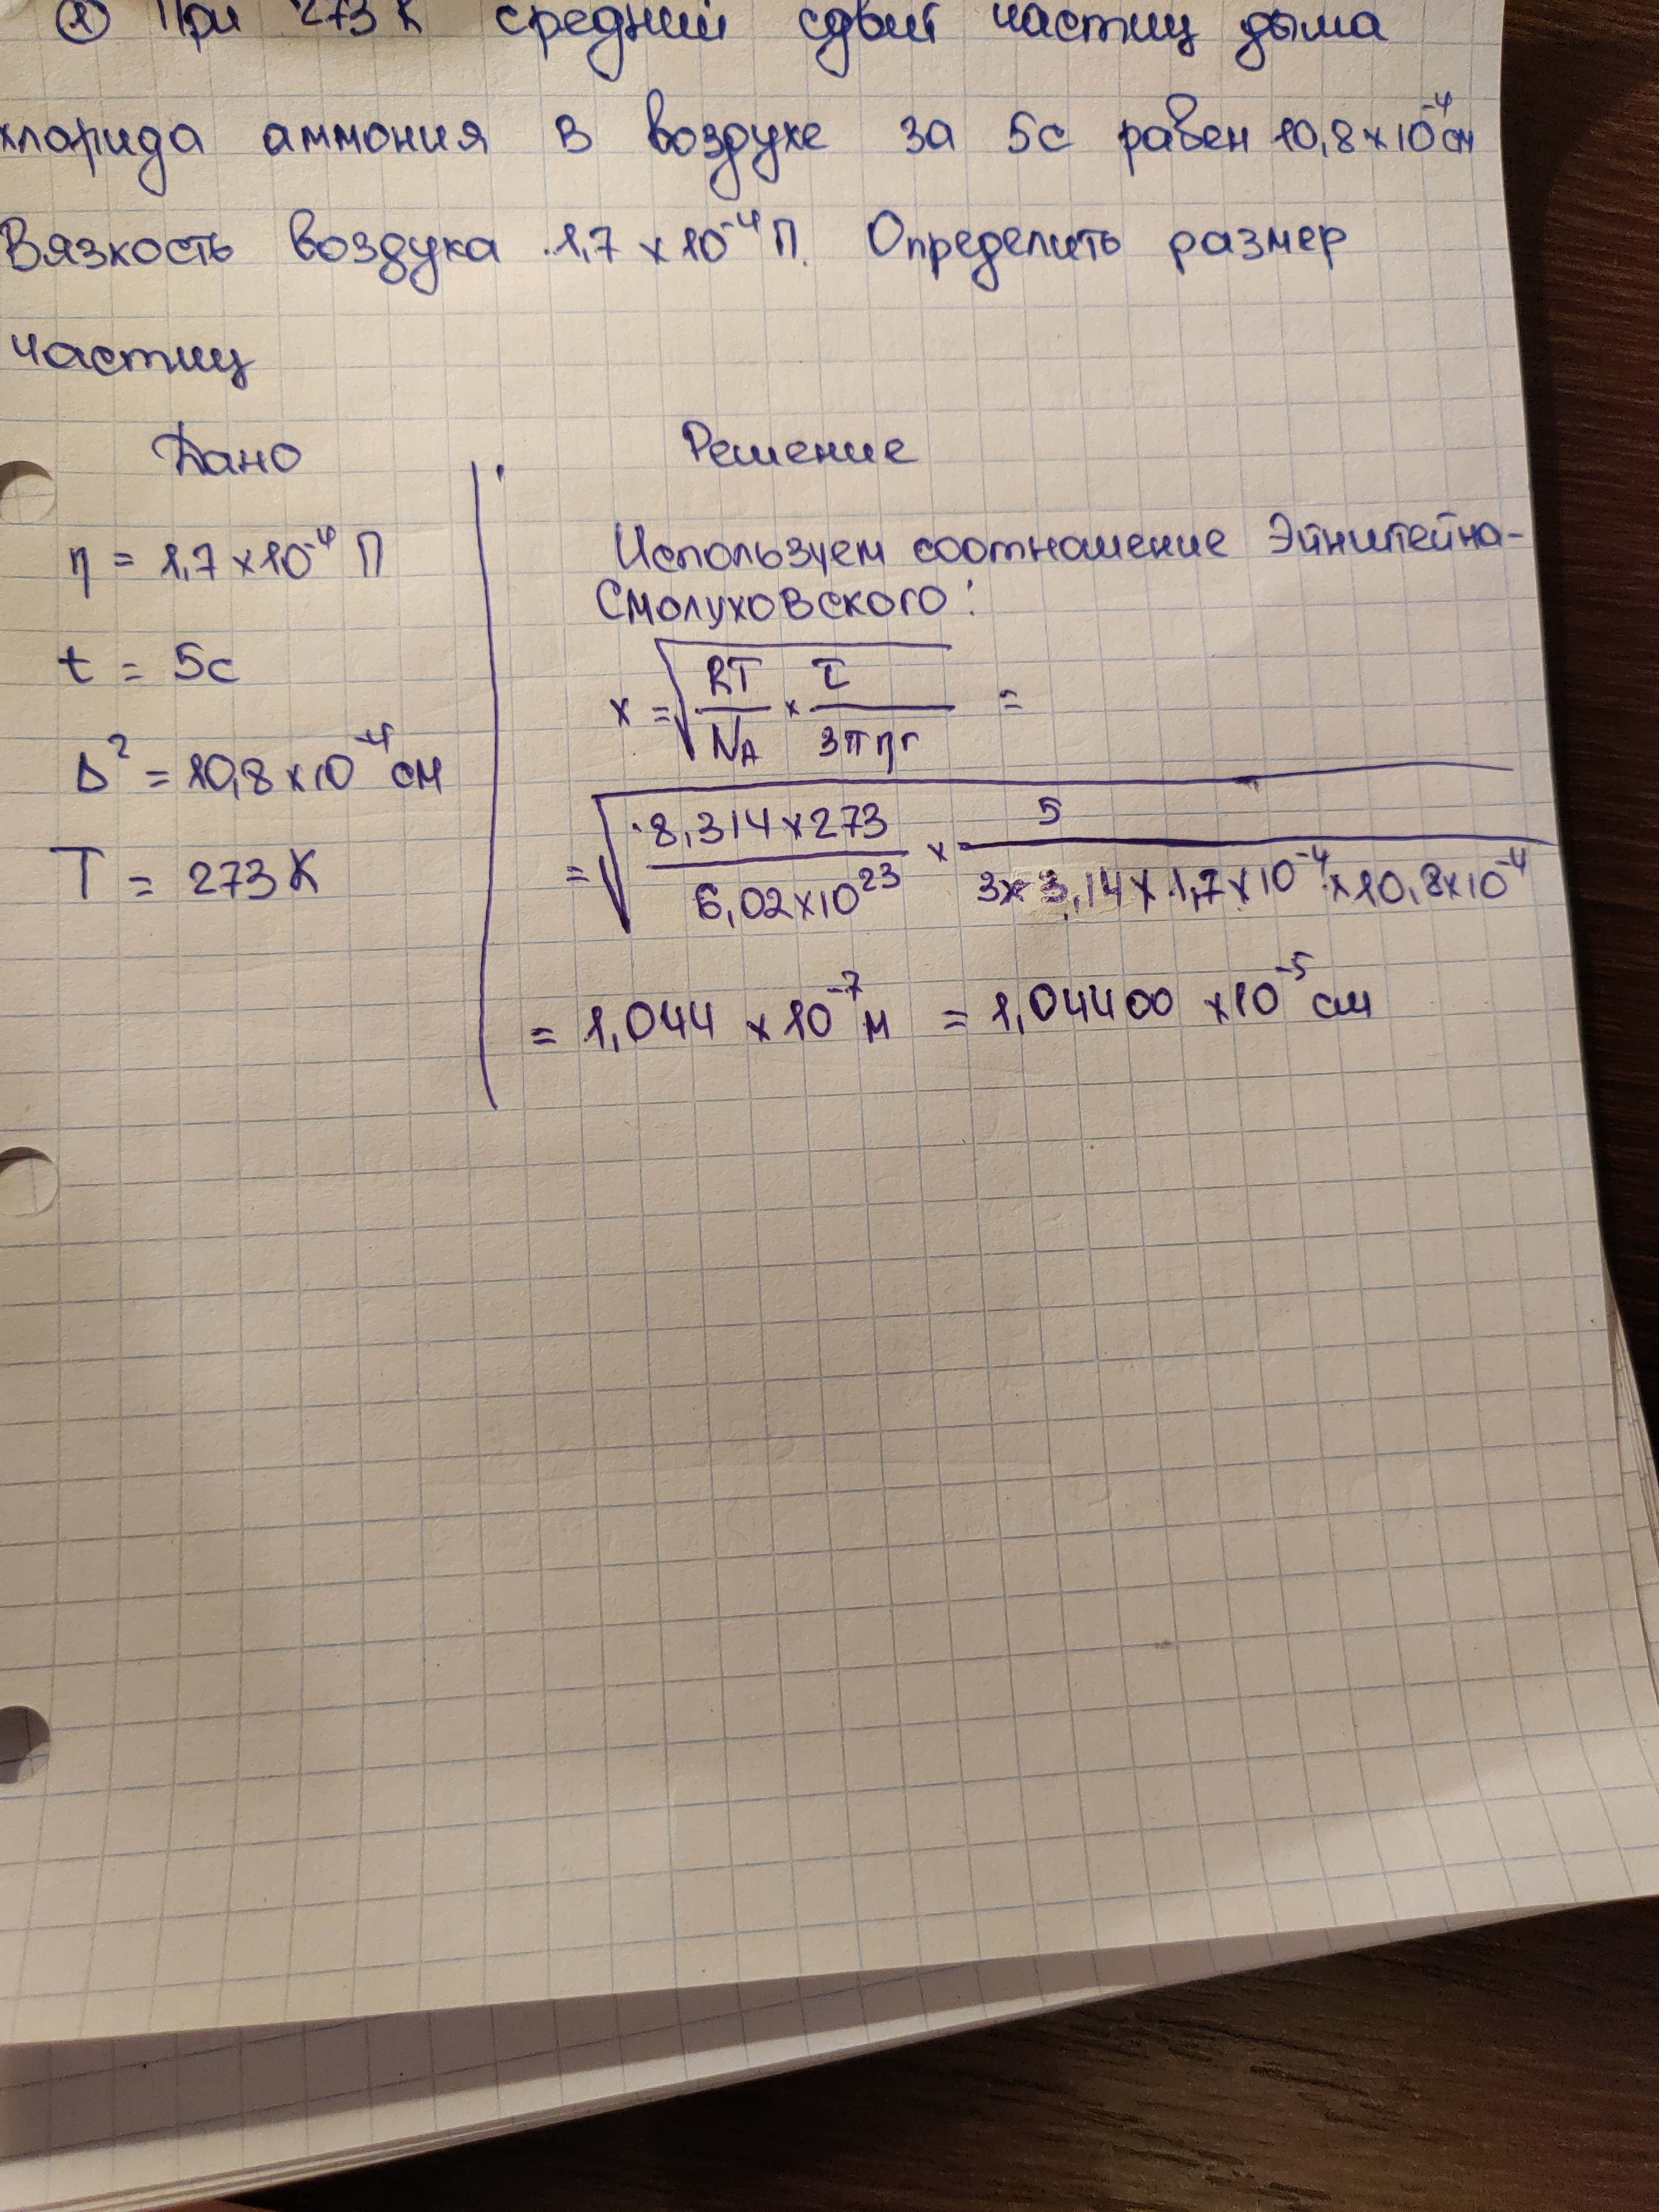 ① При 273 К средний сдвиг частиц дыма
хлорида аммония в воздухе за 5с равен 10,8×10⁻⁴см
Вязкость воздуха 1,7 × 10⁻⁴ П. Определить размер
частиц
Дано
Решение
η = 1,7×10⁻⁴ П
t = 5с
Δ² = 10,8×10⁻⁴ см
T = 273 К
Используем соотношение Эйнштейна-
Смолуховского:
x = √(RT/N_A × τ/3πηr) =
= √(8,314×273/6,02×10²³ × 5/3×3,14×1,7×10⁻⁴×10,8×10⁻⁴)
= 1,044 ×10⁻⁷ м = 1,04400 ×10⁻⁵ см